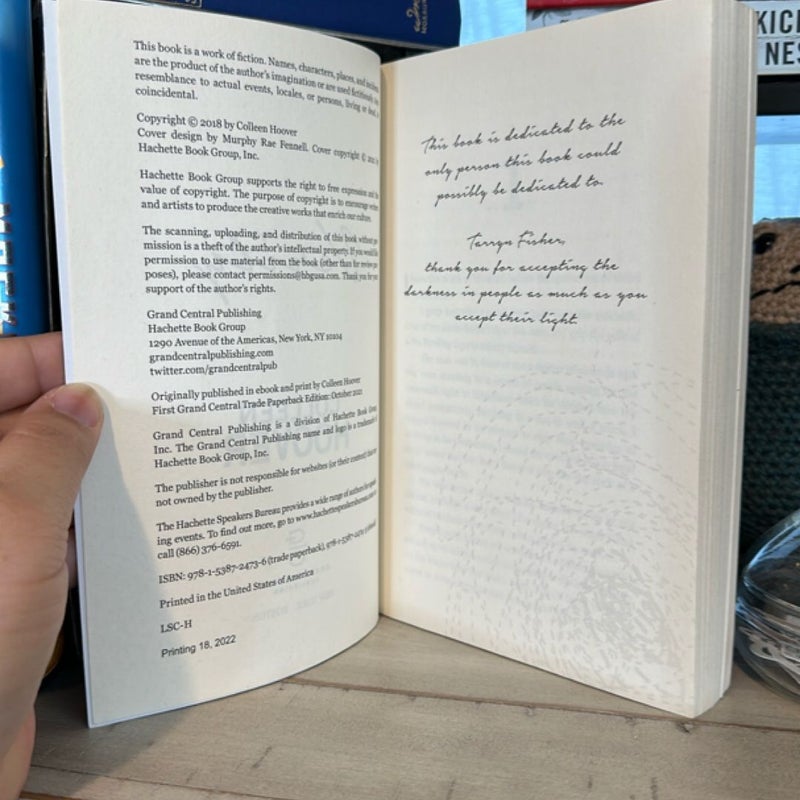 This book is a work of fiction. Names, characters, places, and
are the product of the author's imagination or are used fictitiously
resemblance to actual events, locales, or persons, living or
coincidental.
Copyright © 2018 by Colleen Hoover
Cover design by Murphy Rae Fennell. Cover copyright ©
Hachette Book Group, Inc.
Hachette Book Group supports the right to free expression and the
value of copyright. The purpose of copyright is to encourage
and artists to produce the creative works that enrich our culture.
The scanning, uploading, and distribution of this book without
mission is a theft of the author's intellectual property. If you would
permission to use material from the book (other than for review
poses), please contact permissions@hbgusa.com. Thank you for
support of the author's rights.
Grand Central Publishing
Hachette Book Group
1290 Avenue of the Americas, New York, NY 10104
grandcentralpublishing.com
twitter.com/grandcentralpub
Originally published in ebook and print by Colleen Hoover
First Grand Central Trade Paperback Edition: October 2021
Grand Central Publishing is a division of Hachette Book Group,
Inc. The Grand Central Publishing name and logo is a trademark
Hachette Book Group, Inc.
The publisher is not responsible for websites (or their content) that
not owned by the publisher.
The Hachette Speakers Bureau provides a wide range of authors for
ing events. To find out more, go to
call (866) 376-6591.
ISBN: 978-1-5387-2473-6 (trade paperback),
Printed in the United States of America
LSC-H
Printing 18, 2022
This book is dedicated to the
only person this book could
possibly be dedicated to.
Tarryn Fisher,
thank you for accepting the
darkness in people as much as you
accept their light.
KICK
NES